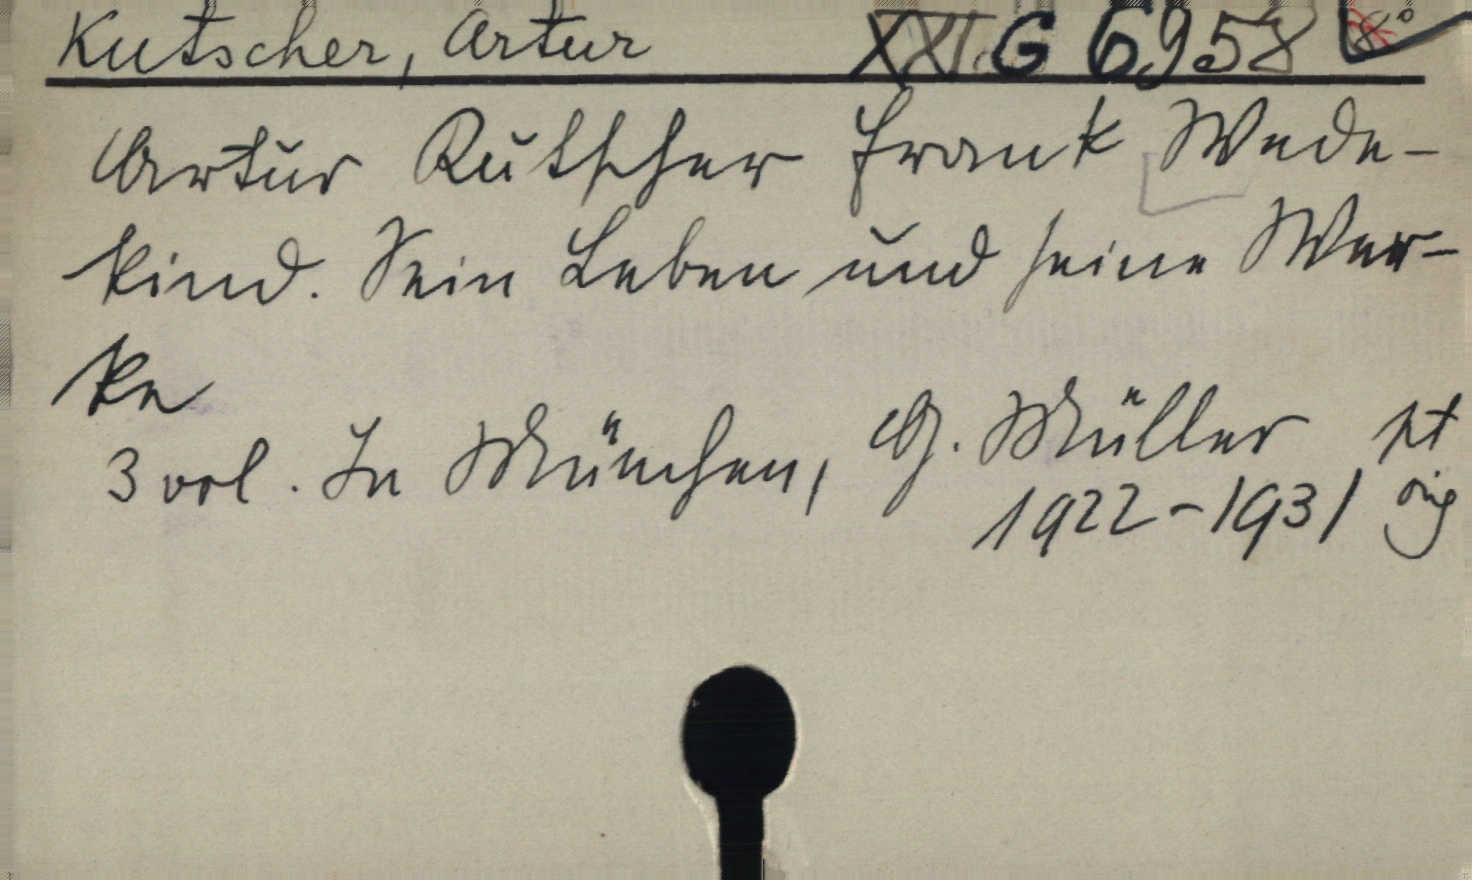 Kutscher, Artur XXI. G 6958 8°
Artur Kutscher Frank Wede-
kind. Sein Leben und seine Wer-
ke
3 vol. In München, G. Müller
1922-1931